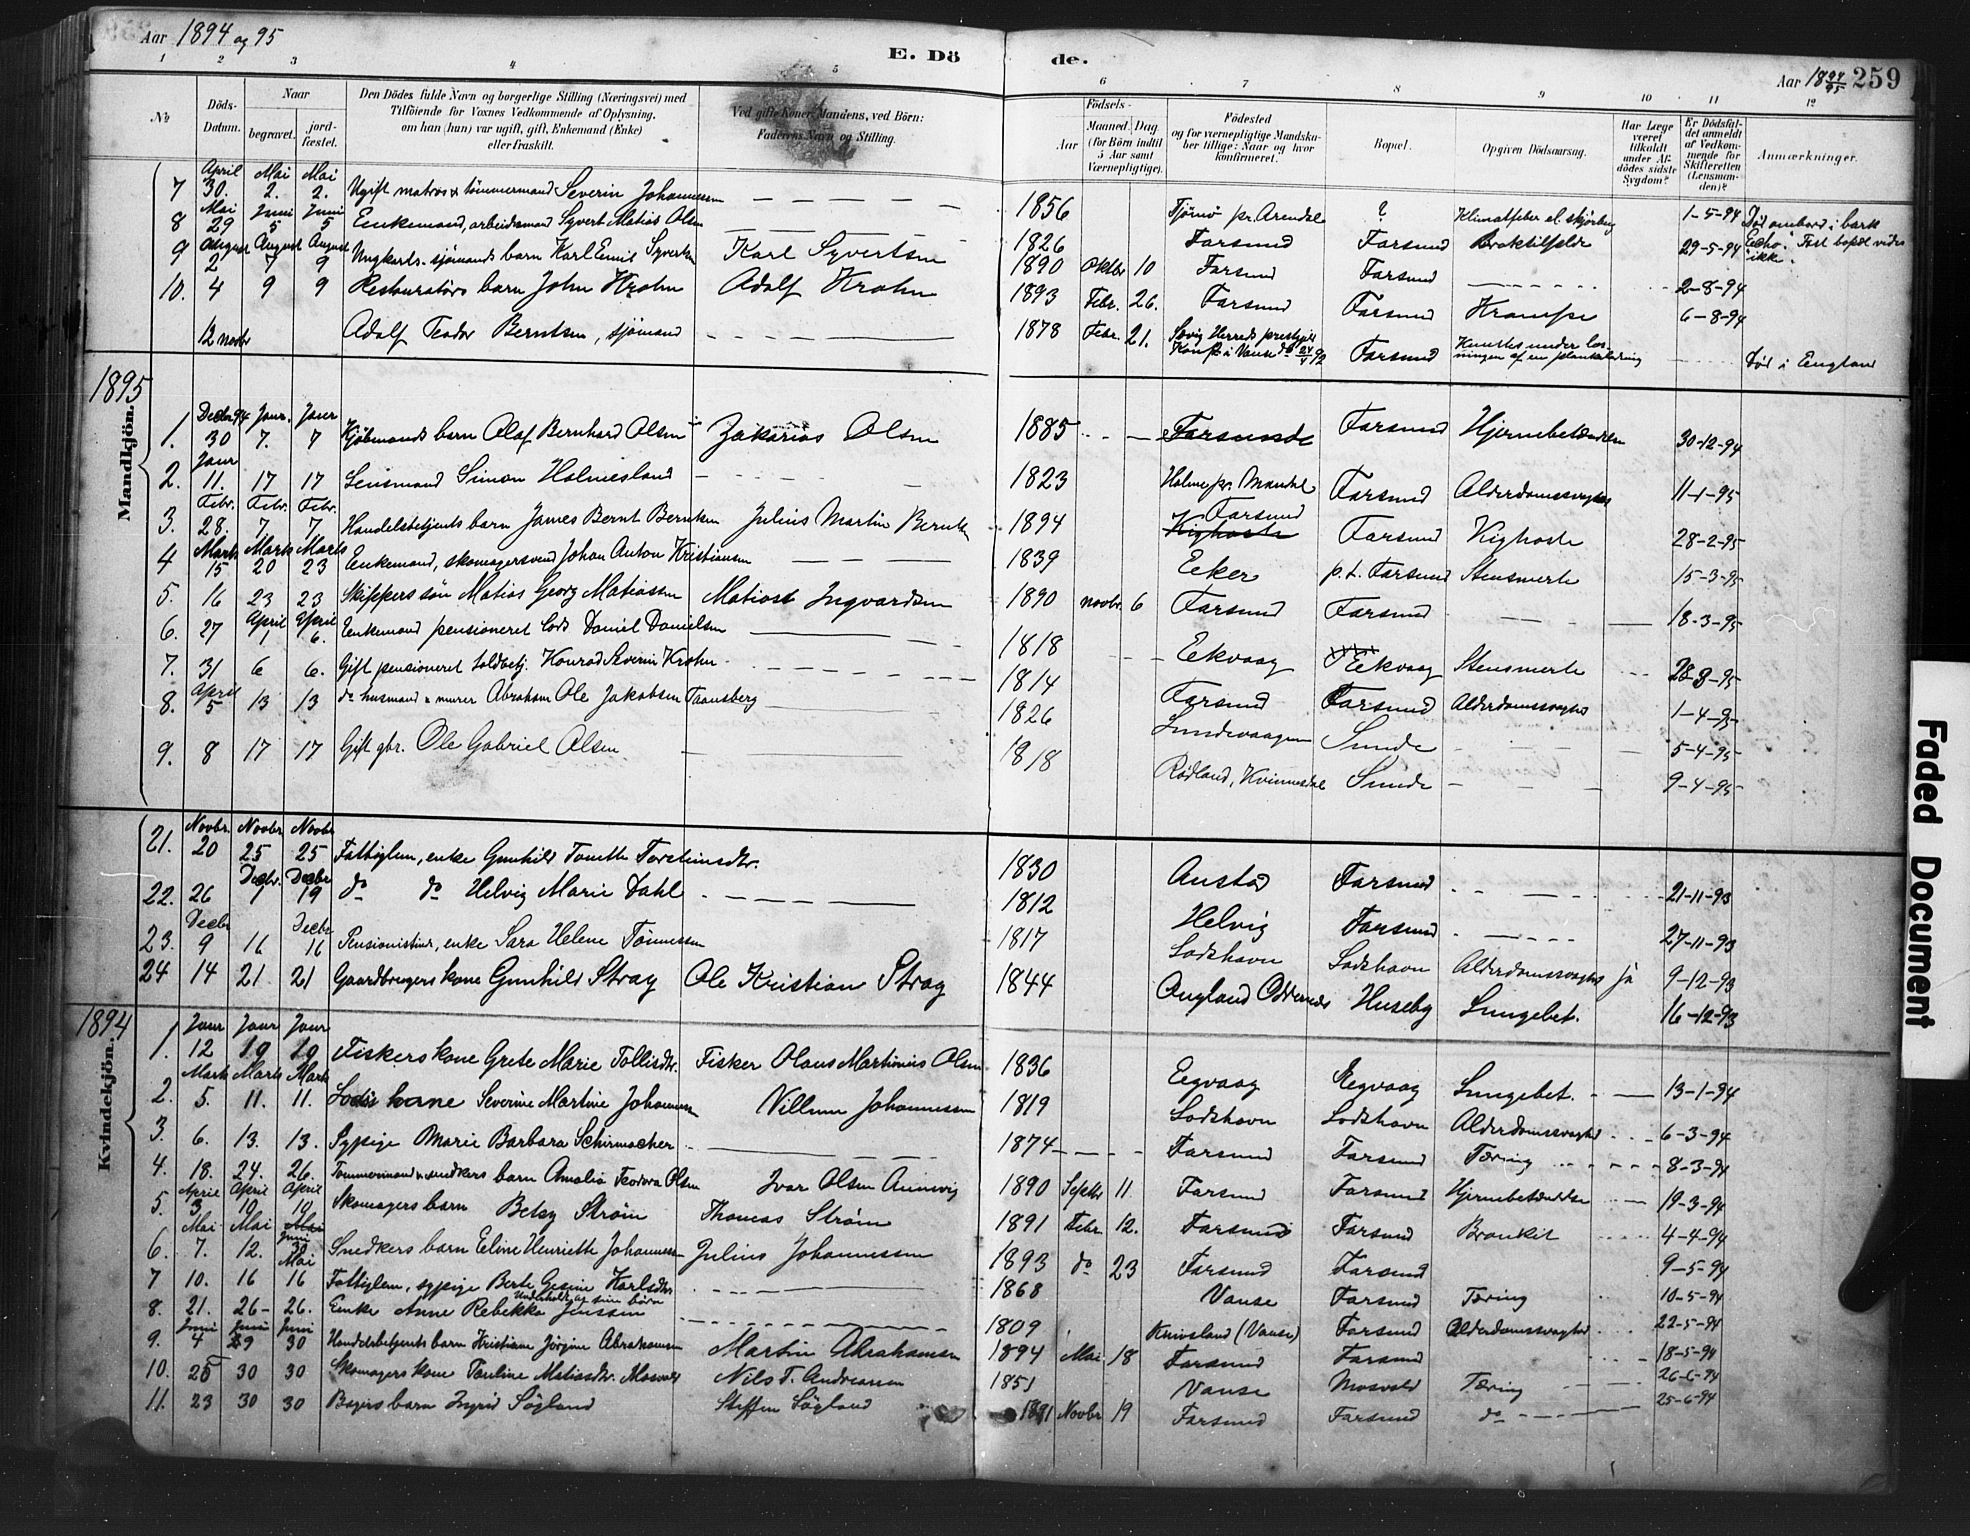 Aar 1894 og 95
E. Döde.
Aar 1894/95 259
1 2 3 4 5 6 7 8 9 10 11 12
No
Döds-Datum.
Naar
begravet.
jord-fæstet.
Den Dödes fulde Navn og borgerlige Stilling (Næringsvei) med Tilföiende for Voxnes Vedkommende af Oplysning, om han (hun) var ugift, gift, Enkemand (Enke) eller fraskilt.
Ved gifte Koner: Mandens, ved Börn: Faderens Navn og Stilling.
Födsels-
Aar
Maaned. Dag.
(for Börn indtil 5 Aar samt Værnepligtige).
Födested og for værnepligtige Mandskaber tillige: Naar og hvor konfirmeret.
Bopæl.
Opgiven Dödsaarsag.
Har Læge været tilkaldt under Afdödes sidste Sygdom?
Er Dödsfaldet anmeldt af Vedkommende for Skifteretten (Lensmanden)?
Anmærkninger.
7 April 30. Mai 2. Mai 2. Ugift matros & tömmermand Severin Johannessen 1856 Tjömö pr. Arendal ? Klimatfeber el. skjörbug 1-5-94 Död ombord i bark Echo. Fast bopæl vides ikke.
8 Mai 29 Juni 5 Juni 5 Enkemand, arbeidsmand Syvert Matias Olsen 1826 Farsund Farsund 29-5-94
9 August 2 August 7 August 9 Ungkarls-sjömands barn Karl Emil Syvertsen Karl Syvertsen 1890 Oktbr 10 Farsund Farsund 2-8-94
10. 4 9 9 Restauratörs barn John Krohn Adolf Krohn 1893 Febr. 26. Farsund Farsund Krampe 6-8-94
12 novbr Adolf Teodor Berntsen, sjömand 1878 Febr. 21. Farsund Död i England
1895
Mandkjön.
1. Decbr 94 30 Janr. 7. Janr 7 Kjöbmands barn Olaf Bernhard Olsen Zakarias Olsen 1885 Farsund Farsund Hjernebetændelse 30-12-94
2. Janr 11. 17 17 Lensmand Simon Holmesland 1823 Holme pr. Mandal Farsund Alderdomssvaghed 11-1-95
3. Febr. 28. Febr. 7 Febr. 7 Handelsbetjents barn James Bernt Berntsen Julius Martin Berntsen 1894 Farsund Kighoste Farsund Kighoste 28-2-95
4 Marts 15 Marts 20 Marts 23 Enkemand, skomagersvend Johan Anton Kristiansen 1839 Eker p.t. Farsund Stensmerte 15-3-95
5. 16 23 23 Skippers sön Matias Georg Matiassen Matias Ingvardsen 1890 novbr. 6 Farsund Farsund 18-3-95
6. 27 April 1 April 6. Enkemand pensioneret lods Daniel Danielsen 1818 Eekvaag Eekvaag Stensmerte 28-3-95
7. 31 6 6. Gift pensioneret toldbetj. Konrad Severin Krohn 1814 Farsund Farsund Alderdomssvaghed 1-4-95
8. April 5 13 13 do husmand & murer Abraham Ole Jakobsen Taansberg 1826 Lundevaagen Sunde 5-4-95
9. 8 17 17 Gift gbr. Ole Gabriel Olsen 1818 Rödland, Kvinnesdal Sunde 9-4-95
21. Novbr. 20 Novbr 25 Novbr 25 Fattiglem, enke Gunhild Tomette Torsteinsdtr. 1830 Austad Farsund 21-11-93
22. 26 Decbr. Decbr 19 do do Helvig Marie Dahl 1812 Helvig Farsund 27-11-93
23. Decbr 9 16 Decbr 16 Pensionistinde, enke Sara Helene Tönnessen 1817 Lodshavn Lodshavn Alderdomssvaghed ja 9-12-93
24 14 21 21 Gaardbrugers kone Gunhild Stray Ole Kristian Stray 1844 Augland Oddernes Huseby Lungebet. 16-12-93
1894
Kvindekjön.
1. Janr 12 Janr 19 Janr 19 Fiskers kone Grete Marie Tollisdtr. Fisker Olaus Martinius Olsen 1836 Eegvaag Eegvaag Lungebet. 13-1-94
2. Marts 5. Marts 11. Marts 11. Lods kone Severine Martine Johannessen Villum Johannessen 1819 Lodshavn Lodshavn Alderdomssvaghed 6-3-94
3. 6. 13. 13. Sypige Marie Barbara Schirmacher 1874 Farsund Farsund Tæring 8-3-94
4. 18. 24. 26. Tömmermand & snedkers barn Amalia Teodora Olsen Ivar Olsen 1890 Septbr 11. Farsund Farsund Hjernebetændelse 19-3-94
5. April 3 April 19 April 19 Skomagers barn Betsy Ström Thomas Ström 1891 Febr. 12. Farsund Farsund Bronkit 4-4-94
6. Mai 7. Mai 12. Mai Juni 30 Snedkers barn Eline Henriette Johannessen Julius Johannessen 1893 do 23 Farsund Farsund 9-5-94
7 10. 16 Mai 16 Fattiglem, sypige Berte Gesine Karlsdtr. 1868 Vanse Farsund Tæring 10-5-94
8. 21. 26- 26. Enke Anne Rebekka Jenssen Underholdt af sine börn 1809 Knivsland (Vanse) Farsund Alderdomssvaghed 22-5-94
9. Juni 4 Juni 29 Juni 30 Handelsbetjents barn Kristiane Jörgine Abrahamsen Martin Abrahamsen 1894 Mai 18 Farsund Farsund 18-5-94
10. 25 30 30 Skomagers kone Pauline Matiasdtr. Mosvold Nils T. Andreassen 1851 Vanse Mosvold Tæring 26-6-94
11. 23 30 30 Bagers barn Ingrid Sögland Steffen Sögland 1891 Novbr 19 Farsund Farsund do 25-6-94
Faded Document